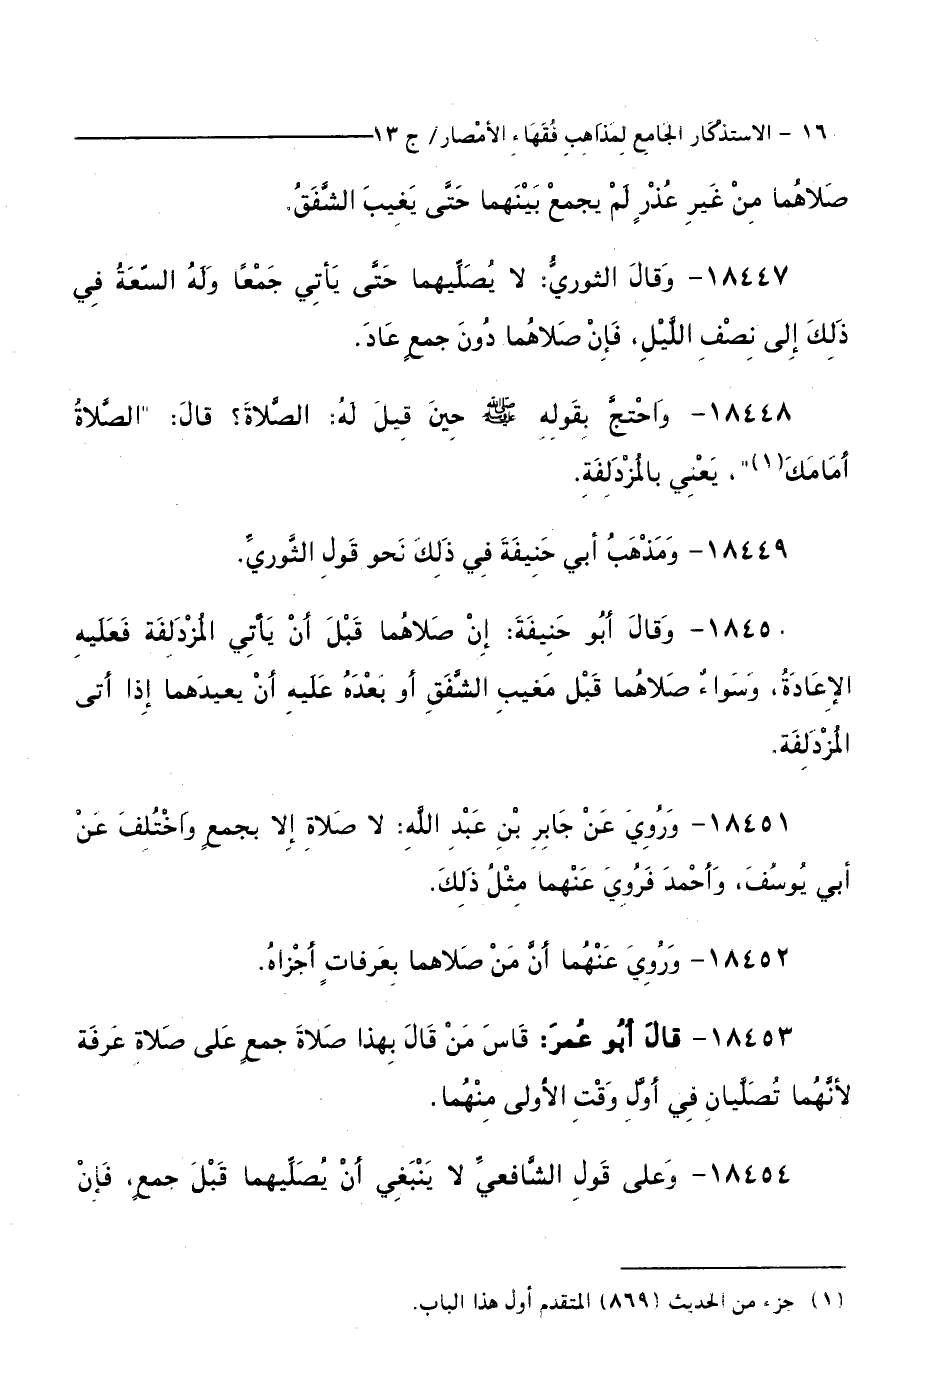 ١٦ - الاستذكار الجامع لمذاهب فُقَهَاء الأمْصار/ ج ١٣
صَلاهُما مِنْ غَيرِ عُذْرٍ لَمْ يجمعْ بَيْنَهما حَتَّى يَغيبَ الشَّفَقُ.
١٨٤٤٧- وَقالَ الثوريُّ: لا يُصَلِّيهما حَتَّى يَأتي جَمْعًا وَلَهُ السّعَةُ في
ذَلكَ إلى نِصْفِ اللَّيْلِ، فَإنْ صَلاهُما دُونَ جمعٍ عَادَ.
١٨٤٤٨- وَاحْتجَّ بقَولهِ ﷺ حينَ قيلَ لَهُ: الصَّلاةَ؟ قالَ: "الصَّلاةُ
أمَامَكَ(١)"، يَعْنِي بالمُزْدَلِفَةِ.
١٨٤٤٩- وَمَذْهَبُ أبي حَنِيفَةَ فِي ذَلكَ نَحو قَولِ الثَّوريِّ.
١٨٤٥٠- وَقالَ أبُو حَنيفَةَ: إنْ صَلاهُما قَبْلَ أنْ يَأتي المُزْدَلِفَة فَعَلَيهِ
الإعَادَةُ، وَسَواءٌ صَلاهُما قَبْل مَغيبِ الشَّفَقِ أو بَعْدَهُ عَليهِ أنْ يعيدَهما إذا أتى
المُزْدَلِفَة.
١٨٤٥١- وَرُويَ عَنْ جَابِرِ بْنِ عَبْدِ اللَّهِ: لا صَلاة إلا بجمعٍ وَاخْتُلفَ عَنْ
أبي يُوسُفَ، وَأحْمدَ فَرُويَ عَنْهما مثْلُ ذَلكَ.
١٨٤٥٢- وَرُويَ عَنْهُما أنَّ مَنْ صَلاهما بعَرفاتٍ أجْزاهُ.
١٨٤٥٣- قالَ أبُو عُمرَ: قَاسَ مَنْ قَالَ بهذا صَلاةَ جمعٍ عَلى صَلاةِ عَرفَة
لأنَّهُما تُصَلَّيانِ في أوَّل وَقْتِ الأولى منْهُما.
١٨٤٥٤- وَعلى قَولِ الشَّافعيِّ لا يَنْبَغي أنْ يُصَلِّيهما قَبْلَ جمعٍ، فَإنْ
(١) جزء من الحديث (٨٦٩) المتقدم أول هذا الباب.